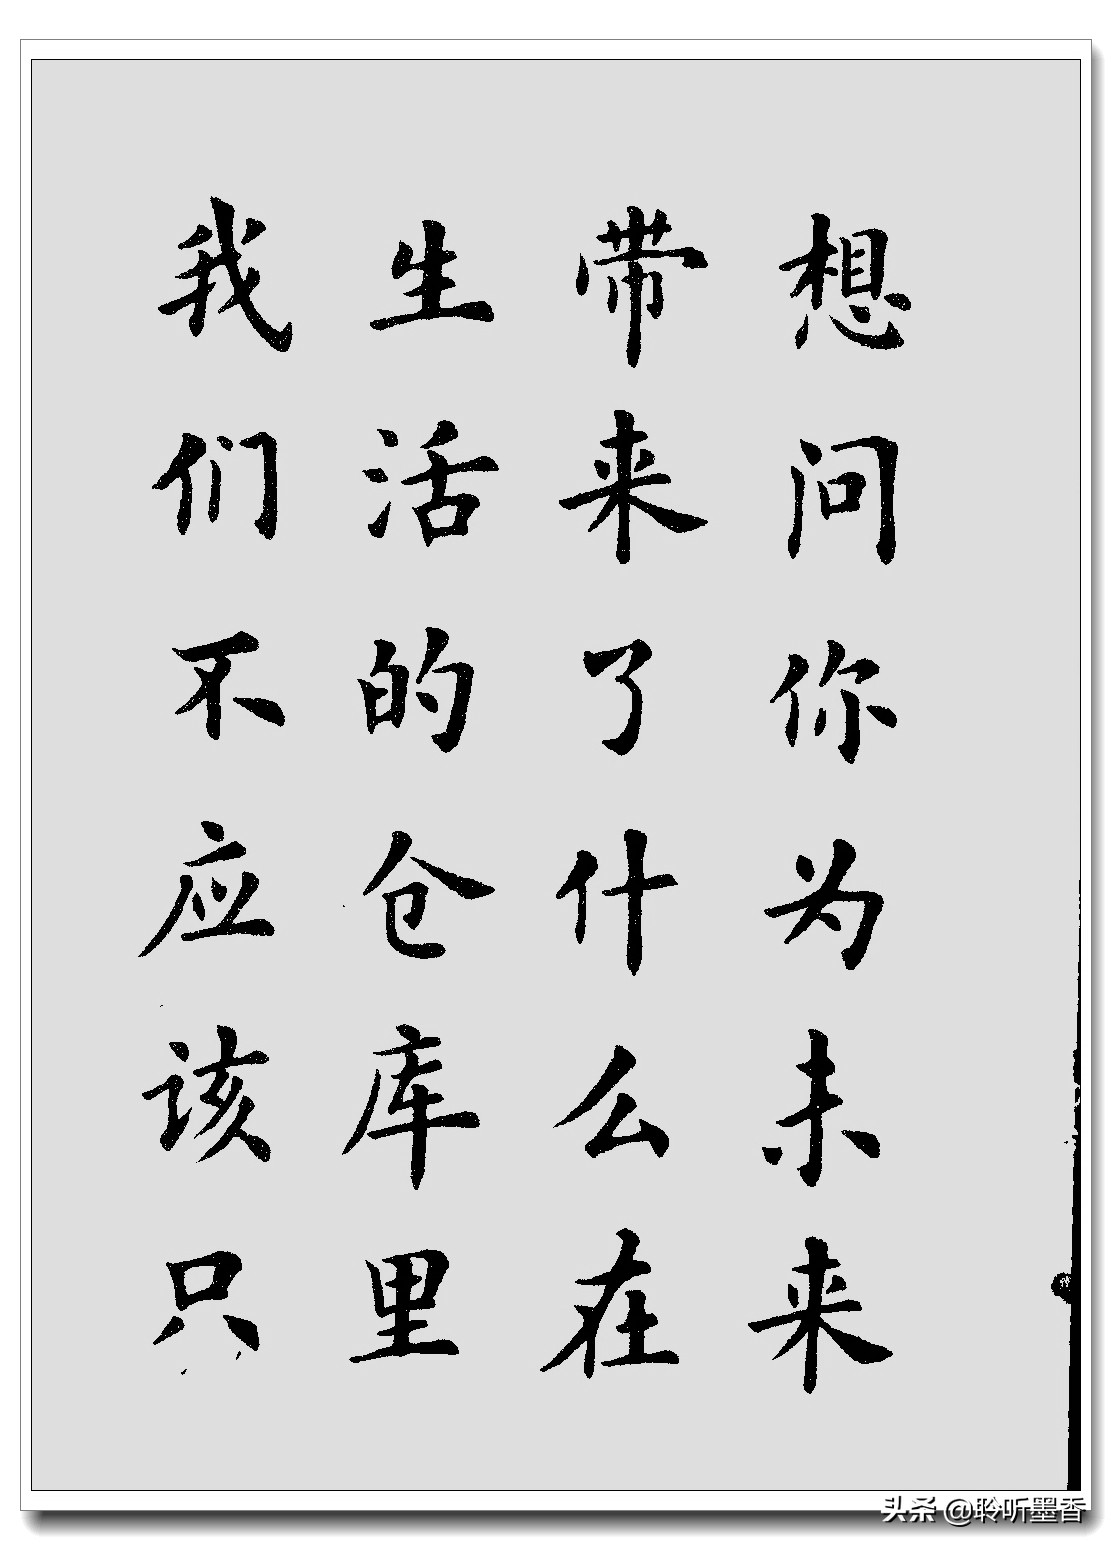 想问你为未来
带来了什么在
生活的仓库里
我们不应该只
头条 @聆听墨香